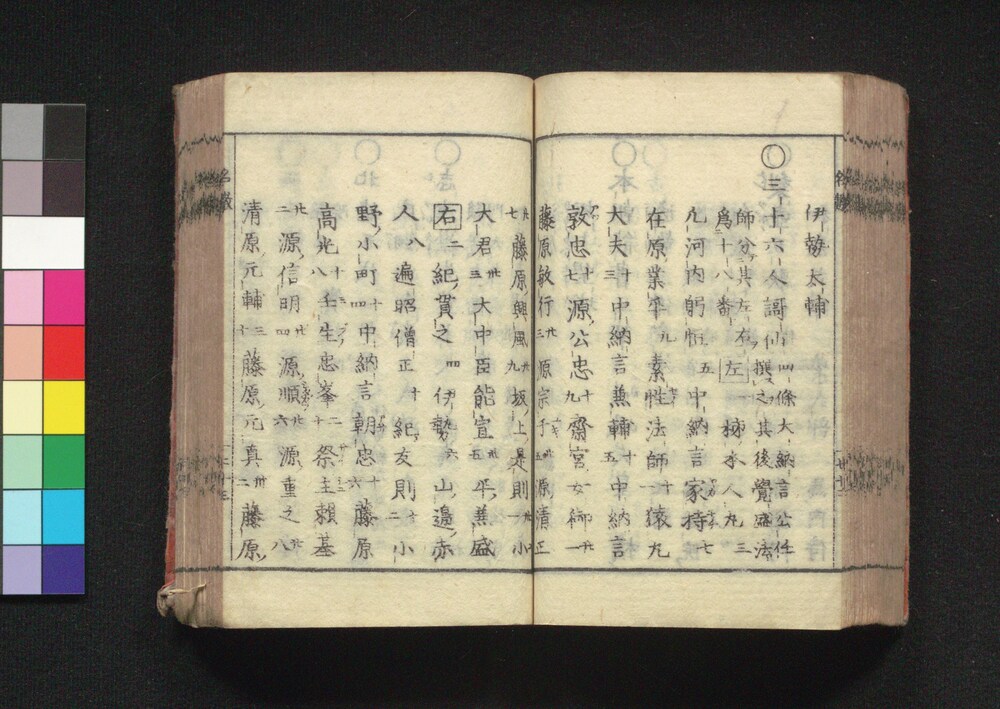 伊勢太輔
○三十六人謌仙 四條大納言公任
撰之其後覺盛法
師分其左右
爲十八番 左 一 柿本人丸 三
凢河内躬恒 五 中納言家持 七
在原業平 九 素性法師 十一 猿丸
大夫 十三 中納言兼輔 十五 中納言
敦忠 十七 源公忠 十九 齋宮女御 廿一
藤原敏行 廿三 源宗于 廿五 源清正
廿七 藤原興風 廿九 坂上是則 卅一 小
大君 卅三 大中臣能宣 卅五 平兼盛
右 二 紀貫之 四 伊勢 六 山邉赤
人 八 遍昭僧正 十 紀友則 十二 小
野小町 十四 中納言朝忠 十六 藤原
高光 十八 壬生忠峯 二十 祭主頼基
廿二 源信明 廿四 源順 廿六 源重之 廿八
清原元輔 三十 藤原元真 卅二 藤原
名数